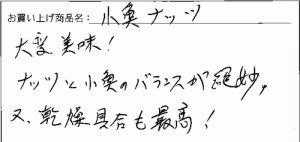 お買い上げ商品名： 小魚ナッツ
大変美味！
ナッツと小魚のバランスが絶妙。
又、乾燥具合も最高！